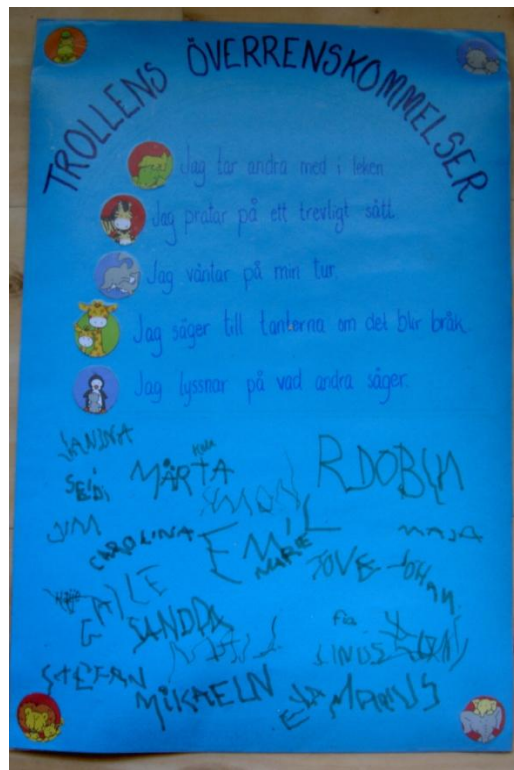 TROLLENS ÖVERRENSKOMMELSER
Jag tar andra med i leken.
Jag pratar på ett trevligt sätt.
Jag väntar på min tur.
Jag säger till tanterna om det blir bråk.
Jag lyssnar på vad andra säger.
SANDRA
MÄRTA
SIMON
JIM
CAROLINA
EMIL
MARIE
MAJA
TOVE
JOHAN
SANDRA
LINUS
STEFAN
MIKAELN
EVA
MAGNUS